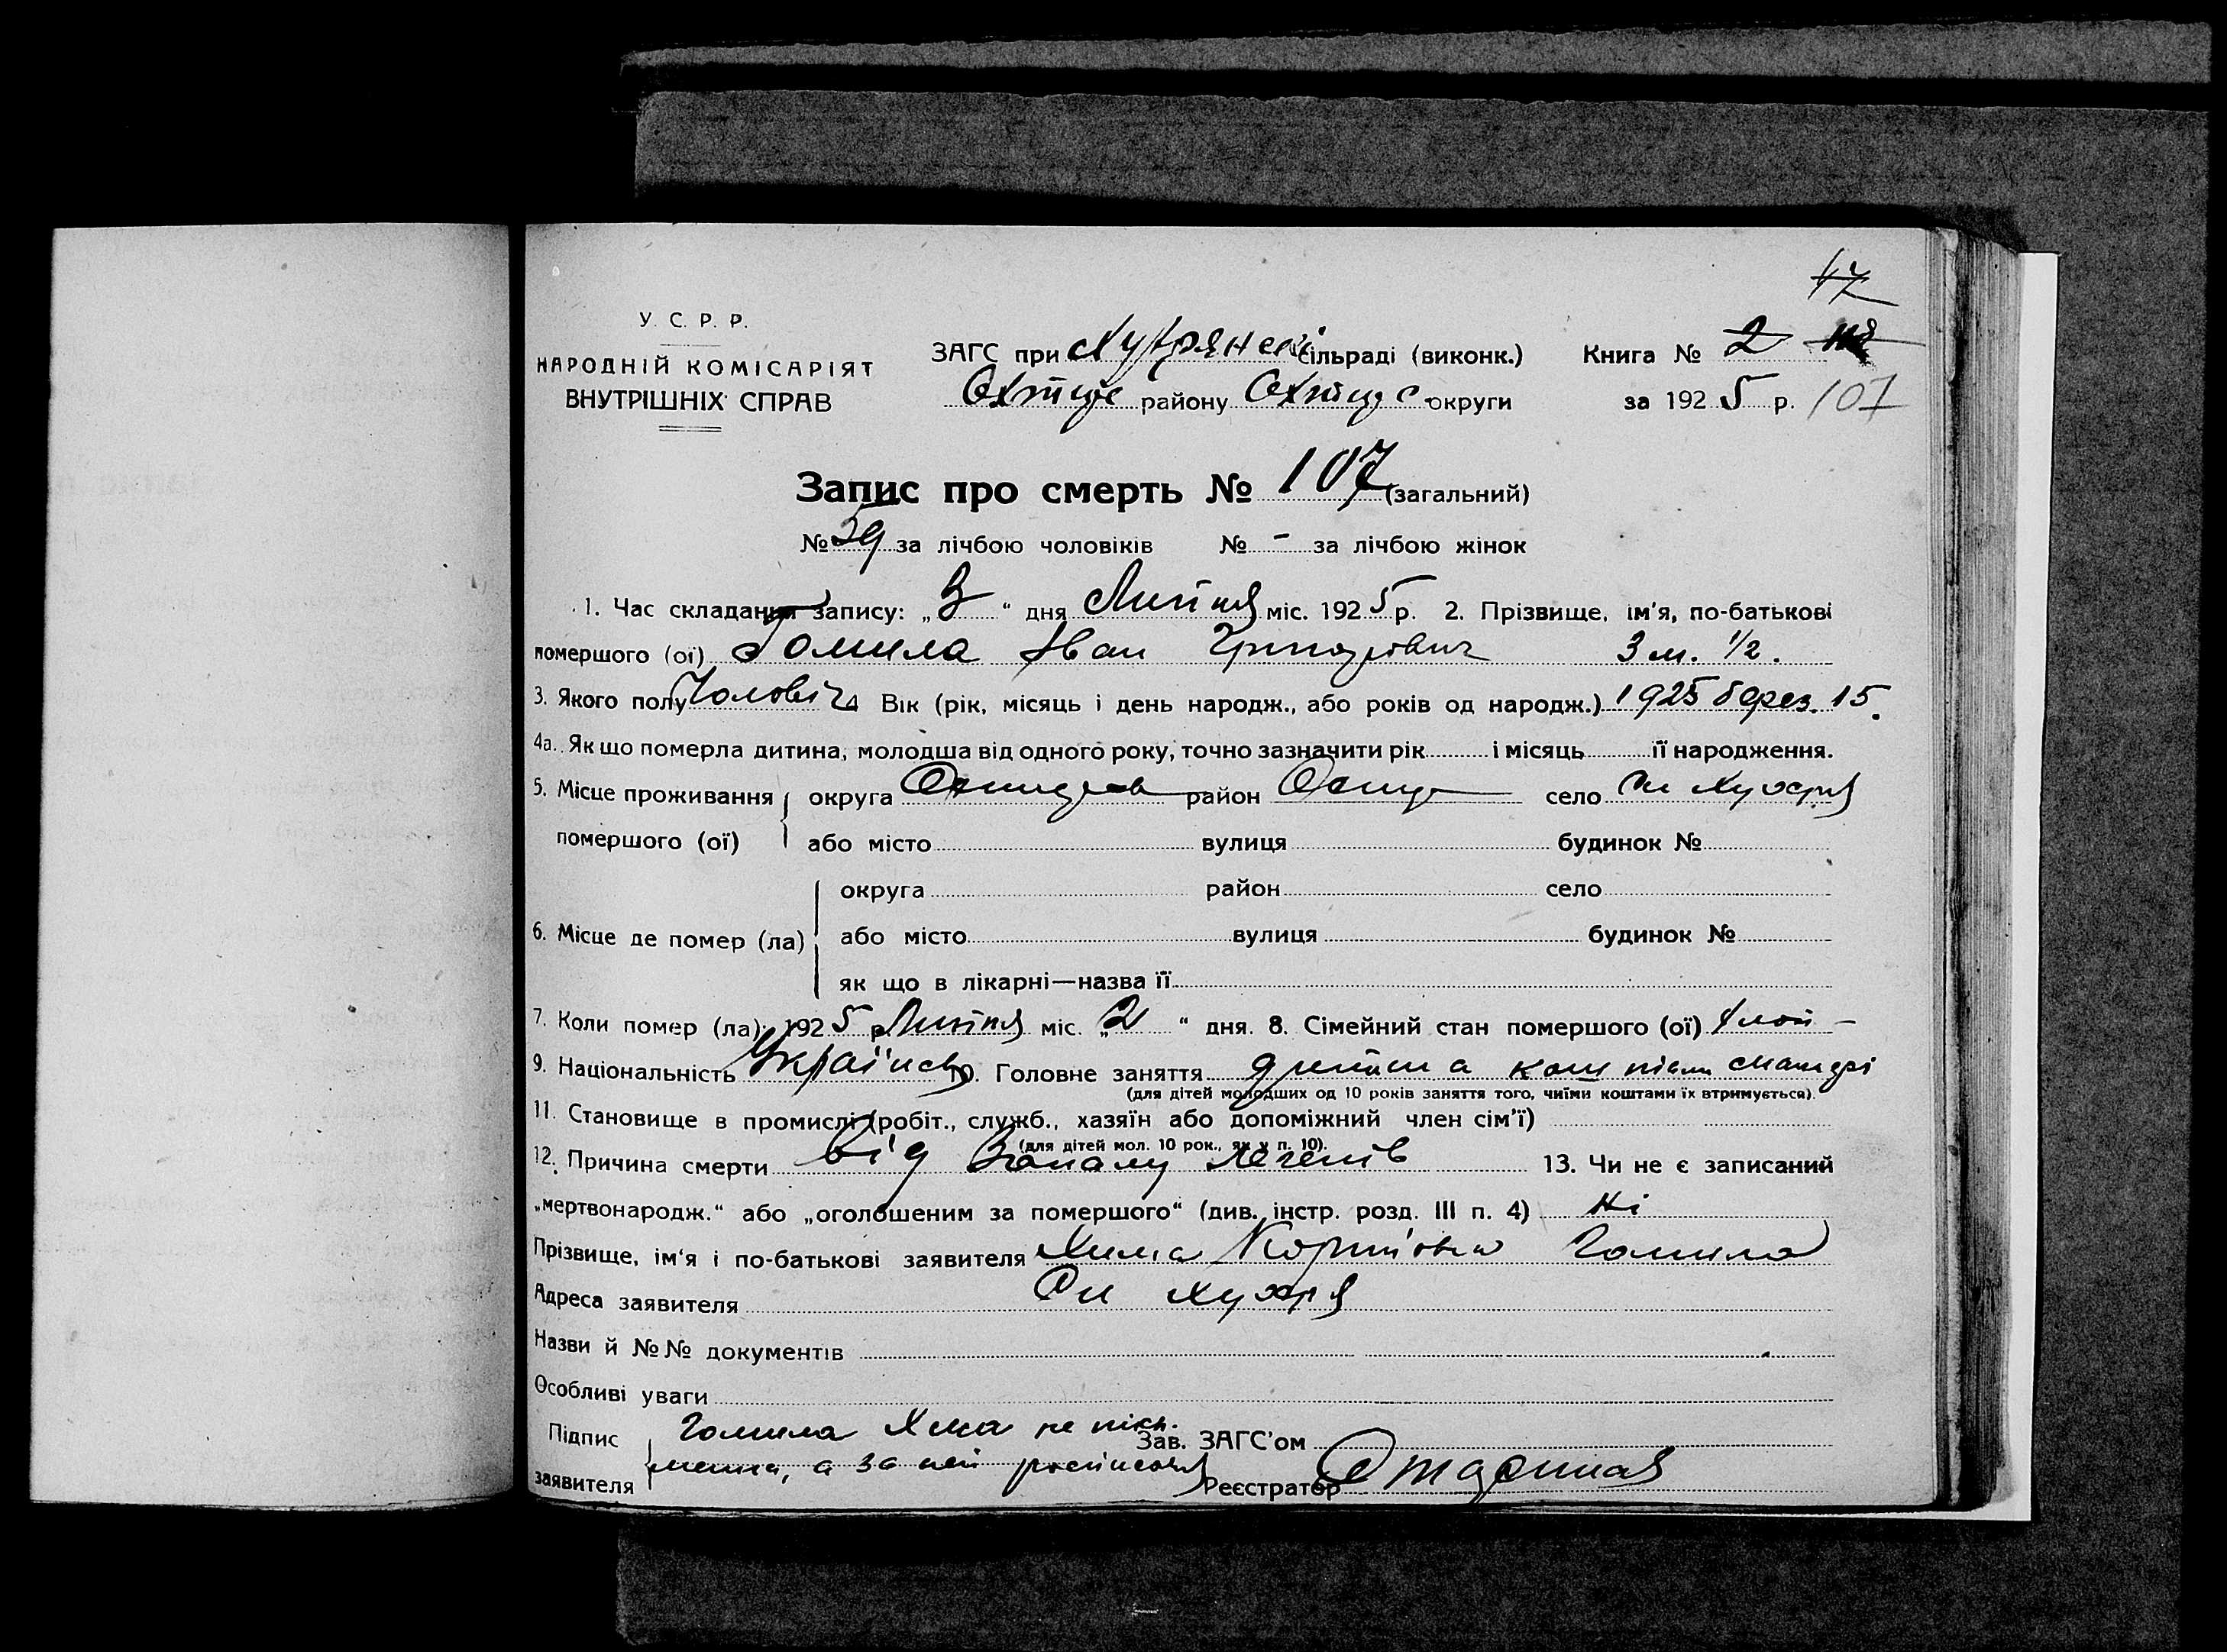 У. С. Р. Р.
НАРОДНІЙ КОМІСАРІЯТ
ВНУТРІШНІХ СПРАВ
ЗАГС при Хухрянск. сільраді (виконк.)
Охтир. району Охтирс. округи
17
Книга № 2
за 1925 р. 107
Запис про смерть № 107 (загальний)
№ 59 за лічбою чоловіків № - за лічбою жінок
1. Час складання запису: „3“ дня Липня міс. 1925 р. 2. Прізвище, ім'я, по-батькові
помершого (ої) Гомила Іван Григорович 3 м. 1/2.
3. Якого полу Чолові 4. Вік (рік, місяць і день народж., або років од народж.) 1925 берез. 15.
4а. Як що померла дитина, молодша від одного року, точно зазначити рік і місяць її народження.
5. Місце проживання округа район село Хухря
помершого (ої) або місто вулиця будинок №
округа район село
6. Місце де помер (ла) або місто вулиця будинок №
як що в лікарні—назва її
7. Коли помер (ла): 1925 р. Липня міс. „2“ дня. 8. Сімейний стан помершого (ої)
9. Національність Українець 10. Головне заняття дитина матері
(для дітей молодших од 10 років заняття того, чиїми коштами їх втримується).
11. Становище в промислі (робіт., служб., хазяїн або допоміжний член сім'ї)
(для дітей мол. 10 рок., як у п. 10).
12. Причина смерти від Запалу легенів 13. Чи не є записаний
„мертвонародж.“ або „оголошеним за помершого“ (див. інстр. розд. III п. 4) Ні
Прізвище, ім'я і по-батькові заявителя Хима Гомила
Адреса заявителя Хухря
Назви й №№ документів
Особливі уваги
Підпис Гомила Хима не пись
Зав. ЗАГС'ом
заявителя менна, а за неї росписався
Реєстратор